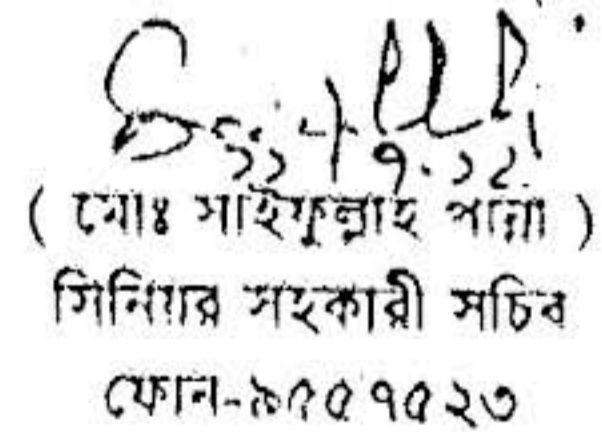 ১১.৭.১২
( মোঃ সাইফুল্লাহ পান্না )
সিনিয়র সহকারী সচিব
ফোন-৯৫৫৭৫২৩